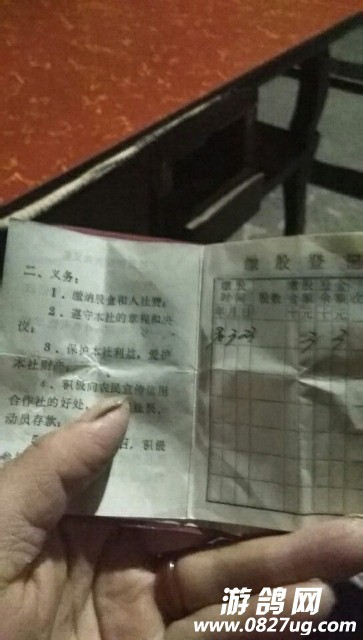 二、义务：
1．缴纳股金和入社费；
2．遵守本社的章程和决
议；
3．保护本社利益，爱护
本社财产；
4．积极向农民宣传信用
合作社的好处，
动员存款；
积极
缴股登
缴股 股数 缴股 股金
时间 金额 余额
年月日 十元 十元
游鸽网
www.0827ug.com